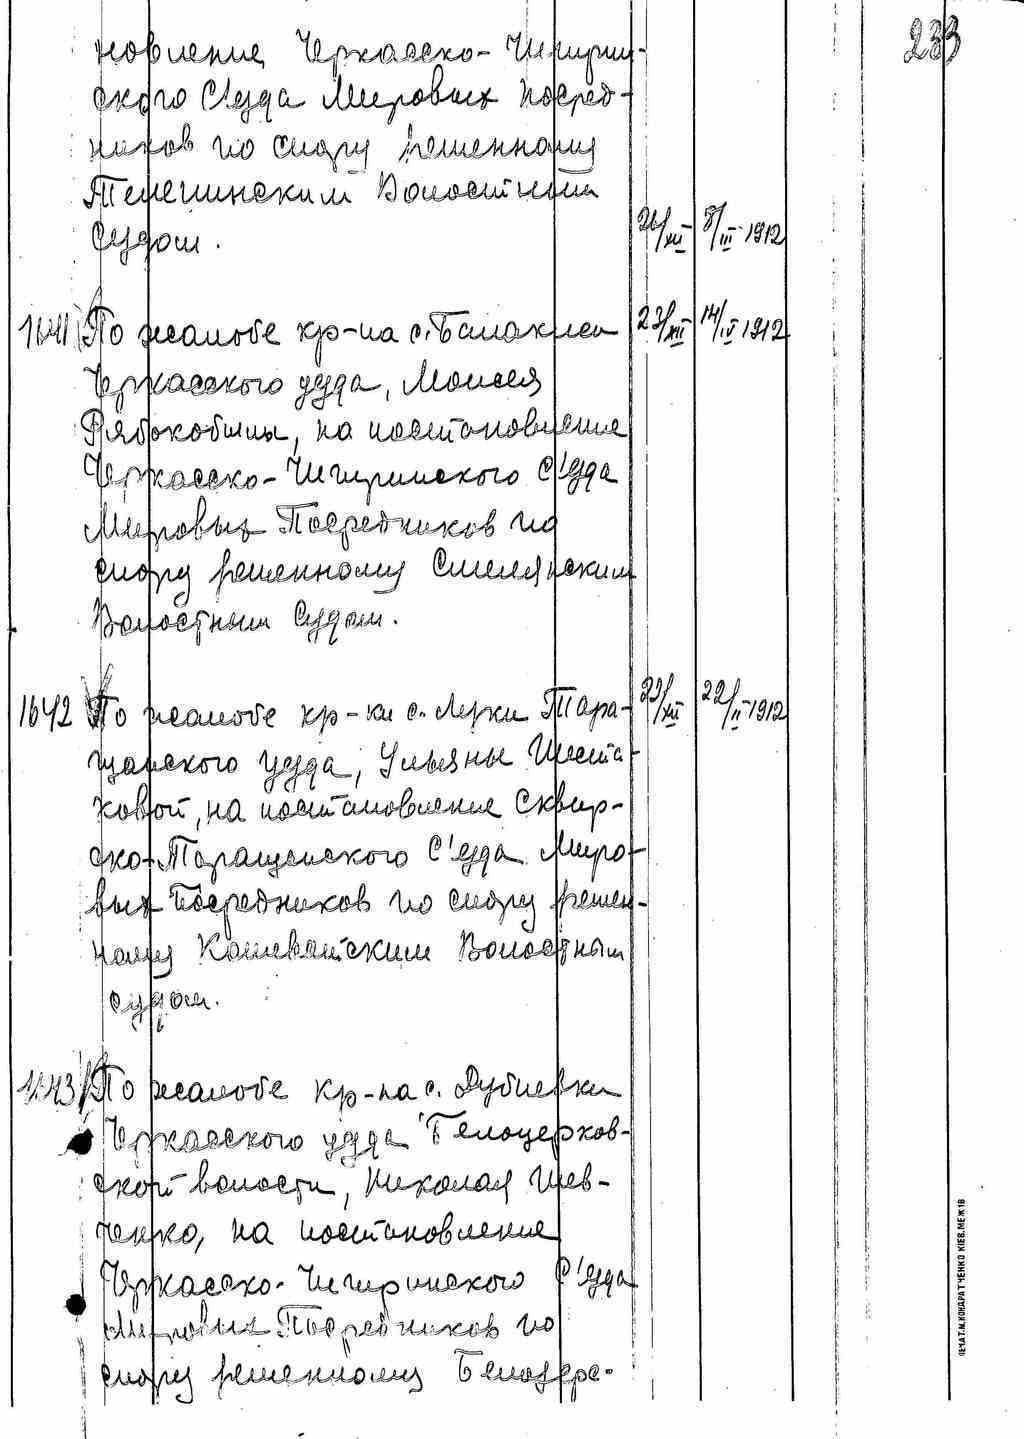 233
новление Черкасско-Чигирин-
ского С'езда Мировых Посред-
ников по спору решенному
Телепинским Волостным
Судом. 26/XII 8/III 1912
1641 По жалобе кр-на с. Балаклеи 23/XII 14/IV 1912
Черкасского уезда, Моисея
Рябокобылы, на постановление
Черкасско-Чигиринского С'езда
Мировых Посредников по
спору решенному Смелянским
Волостным Судом.
1642 По жалобе кр-ки с. Луки Тара- 23/XII 22/II 1912
щанского уезда, Ульяны Шеста-
ковой, на постановление Сквир-
ско-Таращанского С'езда Миро-
вых Посредников по спору решен-
ному Кошеватским Волостным
судом.
1643 По жалобе кр-на с. Дубиевки
Черкасского уезда Белоцерков-
ской волости, Николая Шев-
ченко, на постановление
Черкасско-Чигиринского С'езда
Мировых Посредников по
спору решенному Белозерс-
ПЕЧАТ. М. КОНДРАТЧЕНКО КІЕВ. МЕЖ 18